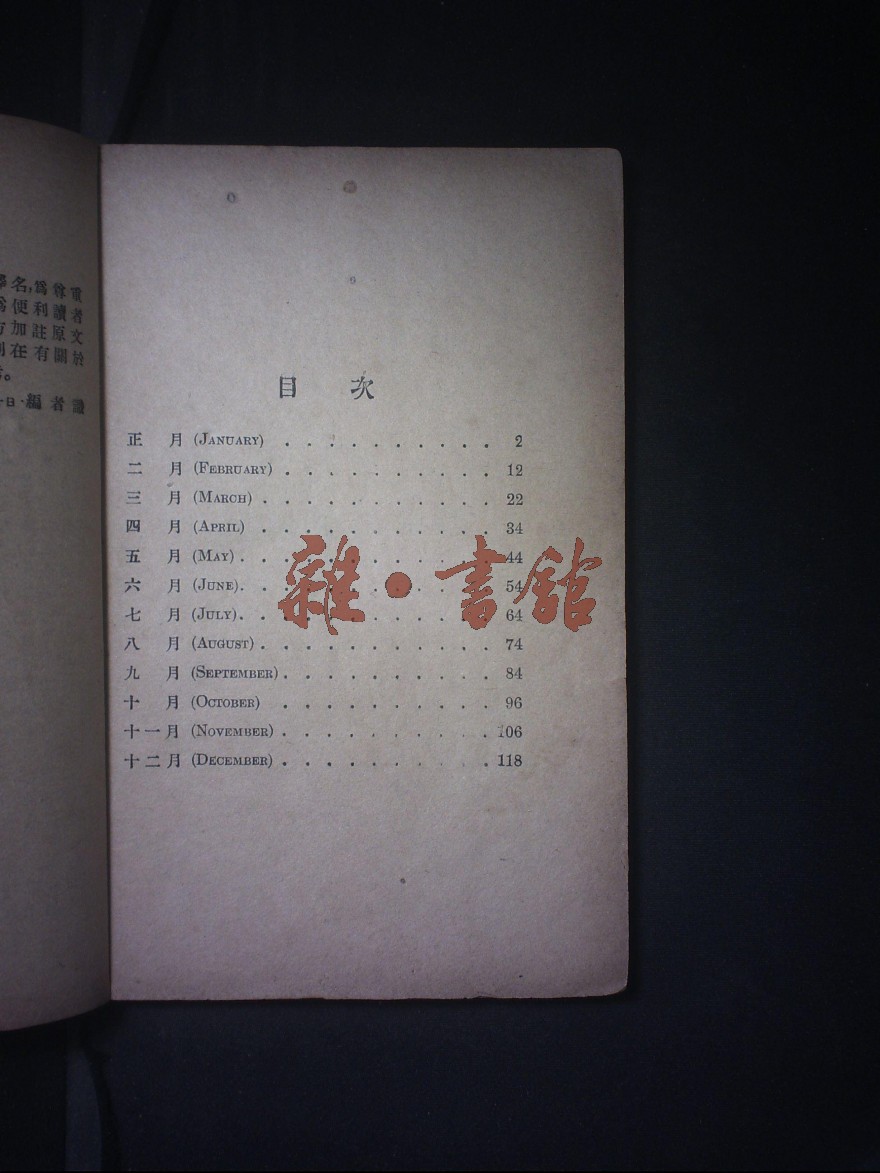 名,爲尊重
爲便利讀者
加註原文
在有關於
。
日·編者識
目 次
正 月 (JANUARY) . . . . . . . . . . 2
二 月 (FEBRUARY) . . . . . . . . . . 12
三 月 (MARCH) . . . . . . . . . . . 22
四 月 (APRIL) . . . . . . . . . . . 34
五 月 (MAY) . . . . . . . . . . . . 44
六 月 (JUNE) . . . . . . . . . . . . 54
七 月 (JULY) . . . . . . . . . . . . 64
八 月 (AUGUST) . . . . . . . . . . . 74
九 月 (SEPTEMBER) . . . . . . . . . . 84
十 月 (OCTOBER) . . . . . . . . . . 96
十一月 (NOVEMBER) . . . . . . . . . . 106
十二月 (DECEMBER) . . . . . . . . . . 118
雜·書館